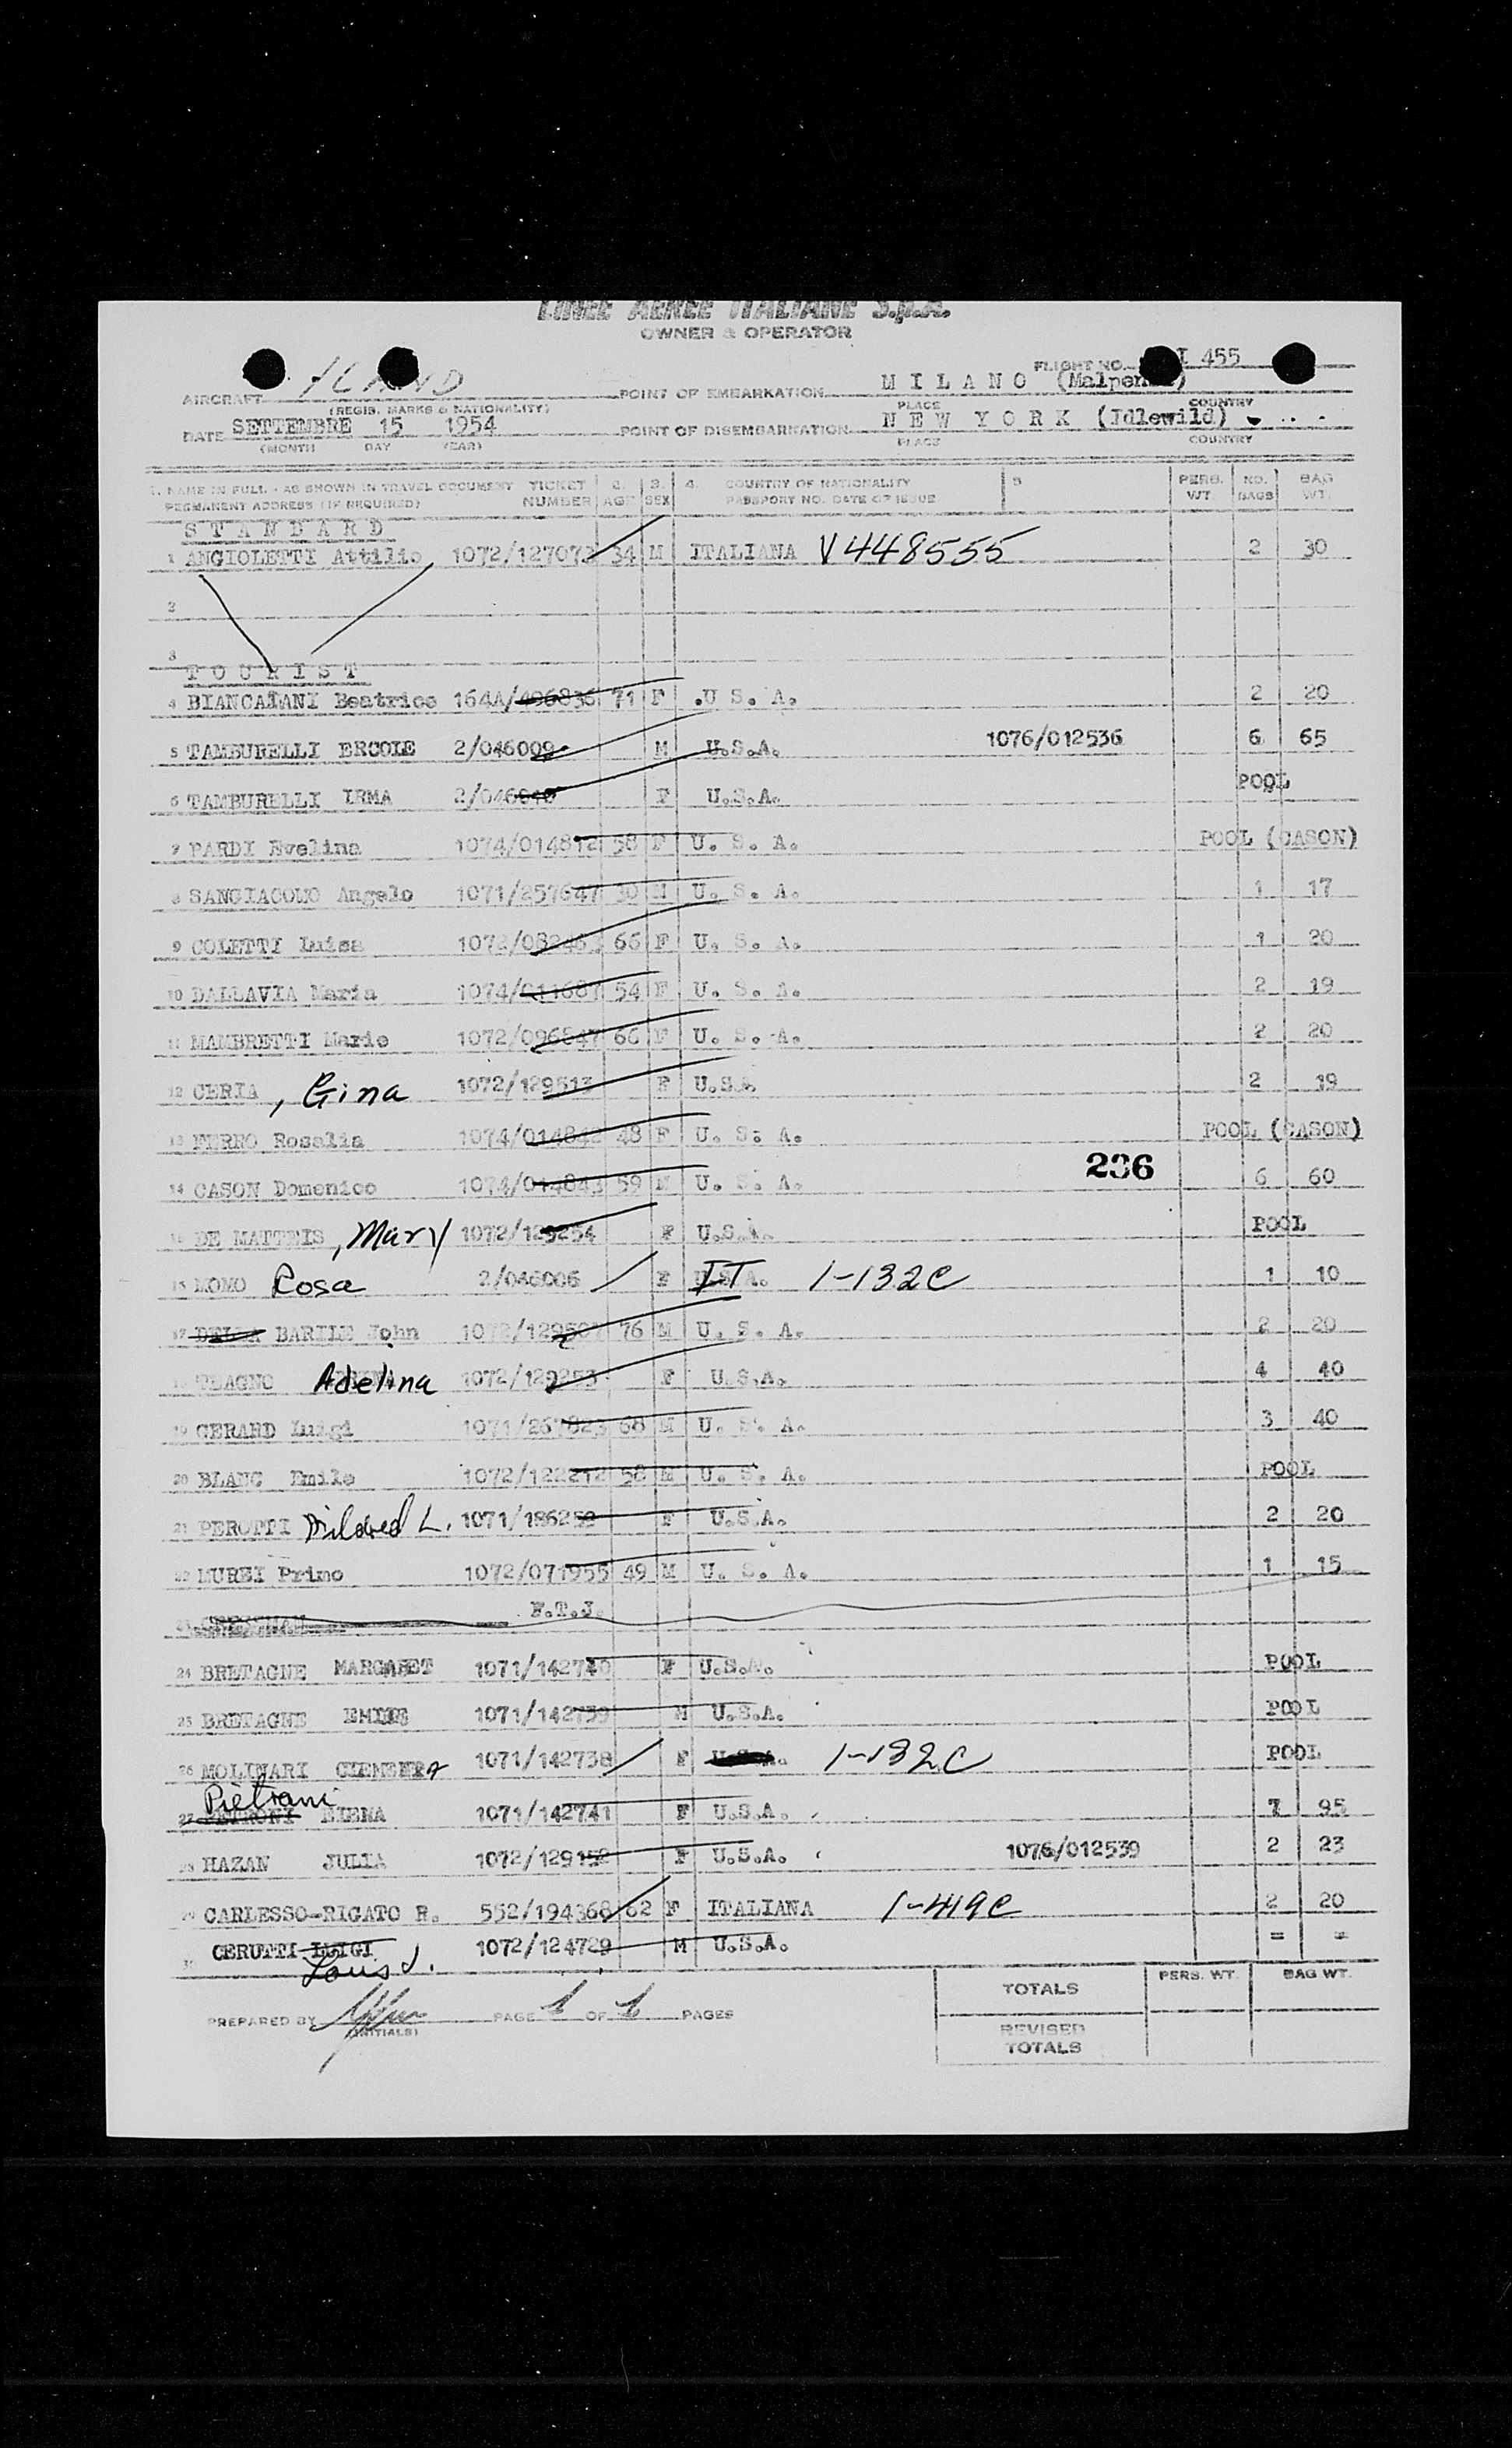 LINEE AEREE ITALIANE S.p.A.
OWNER & OPERATOR
FLIGHT NO. I 455
AIRCRAFT POINT OF EMBARKATION M I L A N O (Malpen
(REGIS. MARKS & NATIONALITY) PLACE COUNTRY
DATE SETTEMBRE 15 1954 POINT OF DISEMBARKATION N E W Y O R K (Idlewild)
(MONTH DAY YEAR) PLACE COUNTRY
1. NAME IN FULL - AS SHOWN IN TRAVEL DOCUMENT TICKET 2. 3. 4. COUNTRY OF NATIONALITY 5 PERS. NO. BAG
PERMANENT ADDRESS (IF REQUIRED) NUMBER AGE SEX PASSPORT NO. DATE OF ISSUE WT. BAGS WT.
S T A N D A R D
1 ANGIOLETTI Attilio 1072/127073 34 M ITALIANA V448555 2 30
2
3
T O U R I S T
4 BIANCALANI Beatrice 164A/496836 71 F .U S. A. 2 20
5 TAMBURELLI ERCOLE 2/046009 M U.S.A. 1076/012536 6 65
6 TAMBURELLI IRMA F U.S.A. POOL
7 PARDI Evelina 1074/014812 58 F U. S. A. POOL (CASON)
8 SANGIACOMO Angelo 1071/257647 30 M U. S. A. 1 17
9 COLETTI Luisa 1072/082463 66 F U. S. A. 1 20
10 DALLAVIA Maria 1074/011687 54 F U. S. A. 2 19
11 MAMBRETTI Marie 1072/096847 66 F U. S. A. 2 20
12 CERIA , Gina 1072/129513 F U.S.A. 2 19
13 FERRO Rosalia 1074/014842 48 F U. S. A. POOL (CASON)
236
14 CASON Domenico 1074/014843 59 M U. S. A. 6 60
15 DE MATTEIS , Mary 1072/129254 F U.S.A. POOL
16 MOMO Rosa 2/046006 F IT 1-132C 1 10
17 BARILE John 76 M U. S. A. 2 20
18 Adelina 1072/129253 F U.S.A. 4 40
19 GERAND Luigi 1071/267823 68 M U. S. A. 3 40
20 BLANC Emile 1072/122212 58 M U. S. A. POOL
21 PEROTTI Mildred L. 1071/186259 F U.S.A. 2 20
22 MUREI Primo 1072/071955 49 M U. S. A. 1 15
23 F.T.J.
24 BRETAGNE MARGARET 1071/142740 F U.S.A. POOL
25 BRETAGNE 1071/142739 M U.S.A. POOL
26 MOLINARI 1071/142738 F U.S.A. 1-132C POOL
Pietrani
27 PETRONI ELENA 1071/142741 F U.S.A. 7 95
28 HAZAN JULIA 1072/129152 F U.S.A. 1076/012539 2 23
29 CARLESSO-RIGATO R. 552/194368 62 F ITALIANA 1-419C 2 20
30 CERUTTI LUIGI 1072/124729 M U.S.A. = =
Louis J.
TOTALS PERS. WT. BAG WT.
PREPARED BY PAGE 1 OF 1 PAGES
(INITIALS)
REVISED
TOTALS